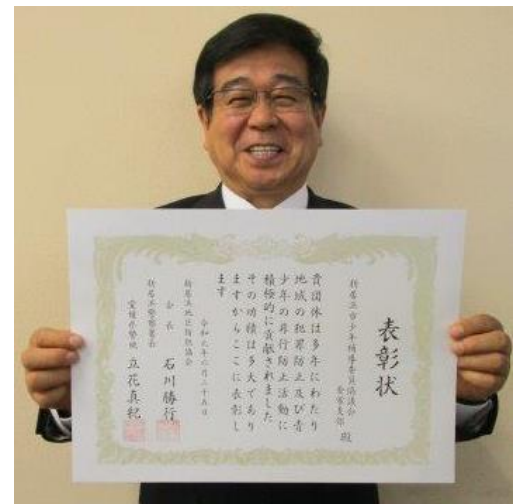 表彰状
新居浜市少年補導委員協議会
金栄支部 殿
貴団体は多年にわたり
地域の犯罪防止及び青
少年の非行防止活動に
積極的に貢献されました
その功績は多大であり
ますからここに表彰し
ます
令和元年六月二十五日
新居浜地区防犯協会
会長 石川勝行
新居浜警察署長
愛媛県警視 立花真紀